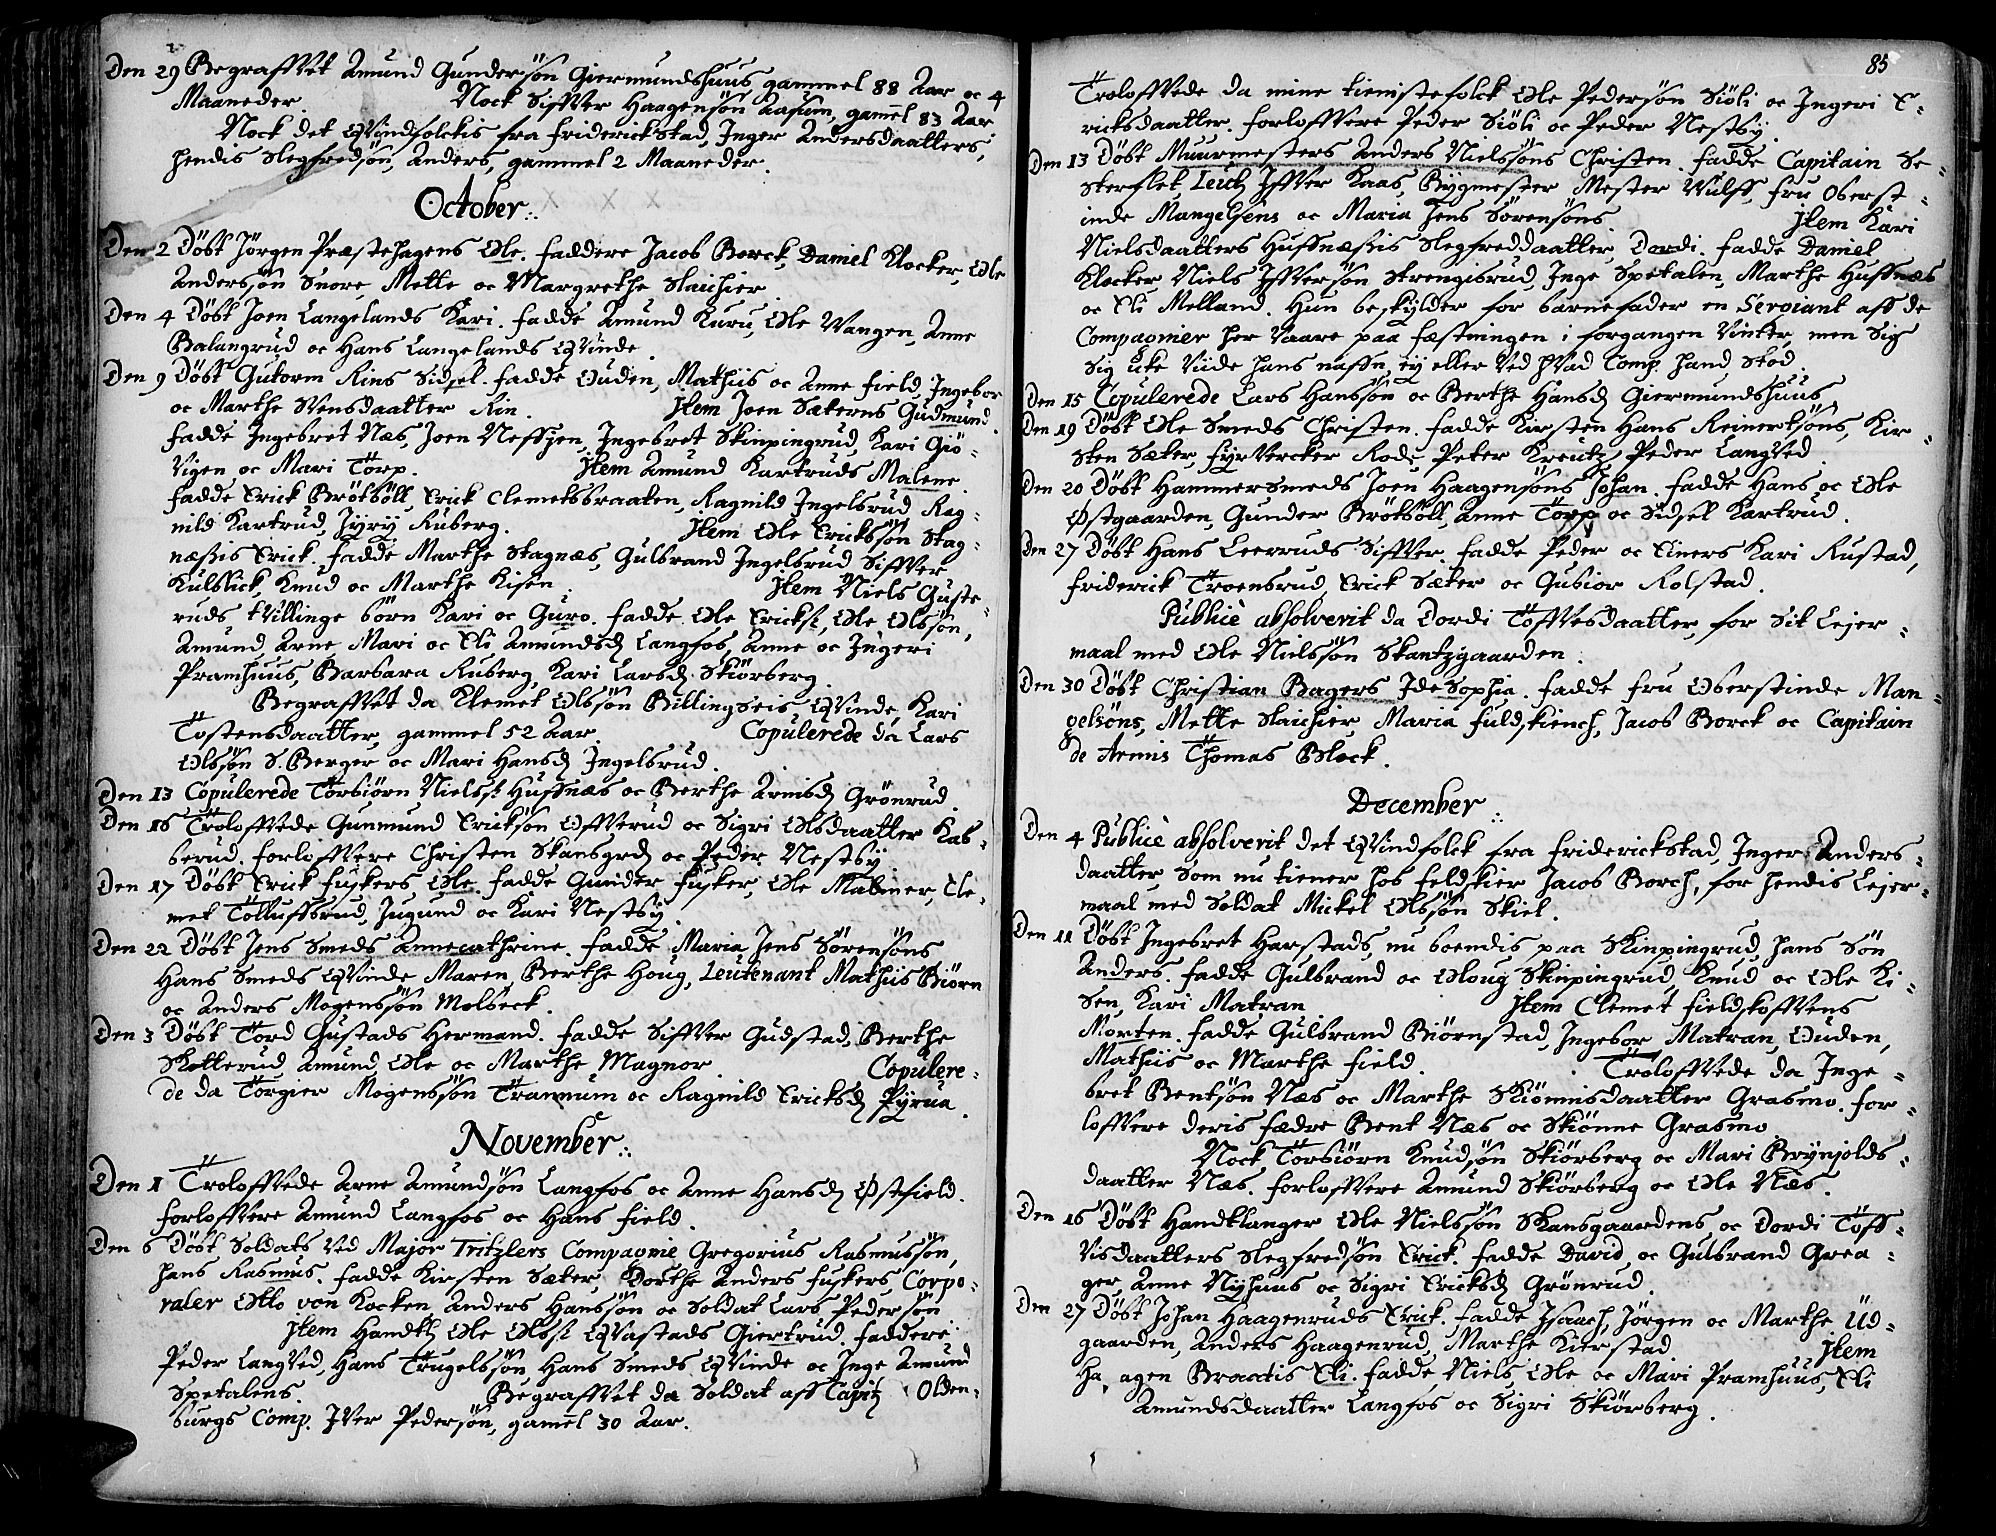 Den 29 Begraffvet Amund Gundersön Giermundshuus gammel 88 Aar oc 4
Maaneder. Nock Siffver Haagensön Aasum, gamel 83 Aar
Nock det Qvindfolckis fra Friderickstad, Inger Andersdaatters,
hendis Slegfredsön, Anders, gammel 2 Maaneder.
October.
Den 2 Döbt Jörgen Præstehagens Ole. Faddere Jacob Borck, Daniel Klocker, Ole
Anderssön Snore, Mette oc Margrethe Slaichier
Den 4 Döbt Joen Langelands Kari. Fadde Amund Kuru, Ole Vangen, Anne
Balangrud oc Hans Langelands Qvinde.
Den 9 Döbt Gutorm Rins Sidsel. Fadde Ouden, Mathiis oc Anne Field, Ingebor
oc Marthe Svensdaatter Rin. Item Joen Sæterns Gudmund.
Fadde Ingebret Næs, Joen Neffsen, Ingebret Skinpingrud, Kari Giö-
vigen oc Mari Törp. Item Amund Kartruds Malene.
Fadde Erick Brötböll, Erick Clemetsbraaten, Ragnild Ingelsrud Rag-
nild Kartrud, Jyry Ruberg. Item Ole Erickssön Stag-
næssis Erick. Fadde Marthe Stagnæs, Gulbrand Ingelsrud Siffver
Kulblick, Knud oc Marthe Kisen. Item Niels Guste-
ruds tvillinge börn Kari oc Guro. Fadde Ole Ericks:, Ole Olssön,
Amund, Arne, Mari oc Eli Amundsd Langfos, Anne oc Ingeri
Pramhuus, Barbara Ruberg, Kari Larsd Skiörberg.
Begraffvet da Klemet Olssön Billingseis Qvinde, Kari
Tostensdaatter, gammel 52 Aar. Copulerede da Lars
Olssön S. Berger oc Mari Hansd Ingelsrud.
Den 13 Copulerede Torbiörn Nielss: Hussnæs oc Berthe Arnisd Grönrud
Den 16 Troloffvede Gunmund Ericksön Offverud oc Sigri Olsdaatter Kab-
berud. Forloffvere Christen Skansgrd oc Peder Nestby
Den 17 Döbt Erick Fuskers, Ole. Fadde Gunder Fusker, Ole Malmer, Cle-
met Tölluffsrud, Jugund oc Kari Nestby.
Den 22 Döbt Jens Smeds Annecathrine. Fadde Maria Jens Sörensöns
Hans Smeds Qvinde Maren, Berthe Houg, Leutenant Mathiis Biörn
oc Anders Mogenssön Molbeck.
Den 3 Döbt Tord Gustads Hermand. Fadde Siffver Gudstad, Berthe
Skotterud, Amund, Ole oc Marthe Magnor. Copulere-
de da Torgier Mogenssön Trannum oc Ragnild Ericksd Pyrua.
November.
Den 1 Troloffvede Arne Amundsön Langfos oc Anne Hansd Østfield.
Forloffvere Amund Langfos oc Hans Field.
Den 6 Döbt Soldats ved Major Tritzlers Compagnie Gregorius Rasmussön,
hans Rasmus. Fadde Kirsten Sæter, Dorthe Anders Fuskers, Corpo-
raler Otto von Kocken, Anders Hanssön oc Soldat Lars Pedersön
Item Handtl Ole Olss: Qvastads Giertrud. Faddere
Peder Langved, Hans Trugelssön, Hans Smeds Qvinde oc Inge Amund
Spetalens. Begraffvet da Soldat aff Capitz Olden-
burgs Comp. Iver Pedersön, gamel 30 Aar.
85
Troloffvede da mine tienistefolck Ole Pedersön Siöli oc Ingeri E-
ricksdaatter. Forloffvere Peder Siöli oc Peder Nestby.
Den 13 Döbt Muurmesters Anders Nielssöns Christen. Fadde Capitain Se-
sterflet Leut Iffver Kaas, Bygmester Mester Wulff, Fru Oberst-
inde Mangelsens oc Maria Jens Sörensöns. Item Kari
Nielsdaatters Hussnæssis Slegfreddaatter, Dordi. Fadde Daniel
Klocker, Niels Iffversön Strengisrud, Inge Spetalen, Marthe Hussnæs
oc Eli Melland. Hun beskylder for barnefader en Sergiant aff de
Compagnier her vaare paa fæstningen i forgangen Vinter, men Sig
Sig icke viide hans naffn, ey eller ved hvad Comp. hand stod.
Den 15 Copulerede Lars Hanssön oc Berthe Hansd Giermundshuus
Den 19 Döbt Ole Smeds Christen. Fadde Kirsten Hans Reinertsöns, Kir-
sten Sæter, Fyrvercker Rode, Peter Kreutz, Peder Langved.
Den 20 Döbt Hammersmeds Joen Haagensöns Johan. Fadde Hans oc Ole
Østgaarden, Gunder Brötböll, Anne Törp oc Sidsel Kartrud.
Den 27 Döbt Hans Leerruds Siffver. Fadde Peder oc Einers Kari Rustad,
Friderick Troensrud, Erick Sæter oc Gubior Rolstad.
Publicè absolverit da Dordi Toffvesdaatter, for Sit Lejer-
maal med Ole Nielssön Skantzgaarden.
Den 30 Döbt Christian Bagers Ide Sophia. Fadde Fru Oberstinde Man-
gelsöns, Mette Slaichier, Maria Fuldskiench, Jacob Borck oc Capitain
de Armis Thomas Block.
December.
Den 4 Publicè absolverit det Qvindfolck fra Friderickstad, Inger Anders-
daatter, Som nu tiener hos Feldskier Jacob Borch, for hendis Lejer-
maal med Soldat Mickel Olssön Skiel.
Den 11 Döbt Ingebret Harstads, nu boendis paa Skinpingrud, hans Sön
Anders. Fadde Gulbrand oc Oloug Skinpingrud, Knud oc Ole Ki-
sen, Kari Matran Item Clemet Fieldskoffvens
Morten. Fadde Gulbrand Biörnstad, Ingebor Matran, Ouden,
Mathiis oc Marthe Field. Troloffvede da Inge-
bret Bentsön Næs oc Marthe Skiönnisdaatter Grasmo. For-
loffvere deris Fædre Bent Næs oc Skiönne Grasmo
Nock Torbiörn Knudsön Skiörberg oc Mari Brynjolds-
daatter Næs. Forloffvere Amund Skiörberg oc Ole Næs.
Den 16 Döbt Handtlanger Ole Nielssön Skansgaardens oc Dordi Töff-
visdaatters Slegfredsön Erick. Fadde David, oc Gulbrand Grea-
ger, Anne Nyhuus oc Sigri Ericksd Grönrud.
Den 27 Döbt Johan Haagenruds Erick. Fadde Isaach, Jörgen oc Marthe Üd-
gaarden, Anders Haagenrud, Marthe Kierstad Item
Ha, agen Braatis Eli. Fadde Niels, Ole oc Mari Pramhuus, Eli
Amundsdaatter Langfos oc Sigri Skiörberg.